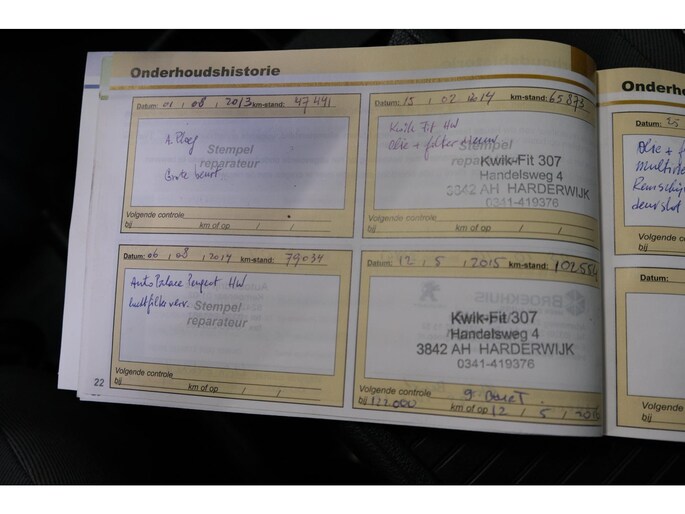 Onderhoudshistorie
Datum: 01 / 08 / 2013 km-stand: 47441
A. Ploeg
Stempel
reparateur
Grote beurt
Volgende controle
bij km of op / /
Datum: 15 / 02 / 2014 km-stand: 65873
Kwik Fit HW
olie + filter nieuw
Stempel
Kwik-Fit 307
Handelsweg 4
3842 AH HARDERWIJK
0341-419376
Volgende controle
bij km of op / /
Datum: 06 / 08 / 2014 km-stand: 79034
Auto Palace Peugeot HW
luchtfilter verv.
Stempel
reparateur
Volgende controle
bij km of op / /
Datum: 12 / 5 / 2015 km-stand: 102554
BROEKHUIS
Kwik-Fit 307
Handelsweg 4
3842 AH HARDERWIJK
0341-419376
Volgende controle
bij 122.000 km of op 12 / 5 /
22
Onderh
Datum: 25
Olie + f
Volgende
bij
Datum:
Volgende
bij